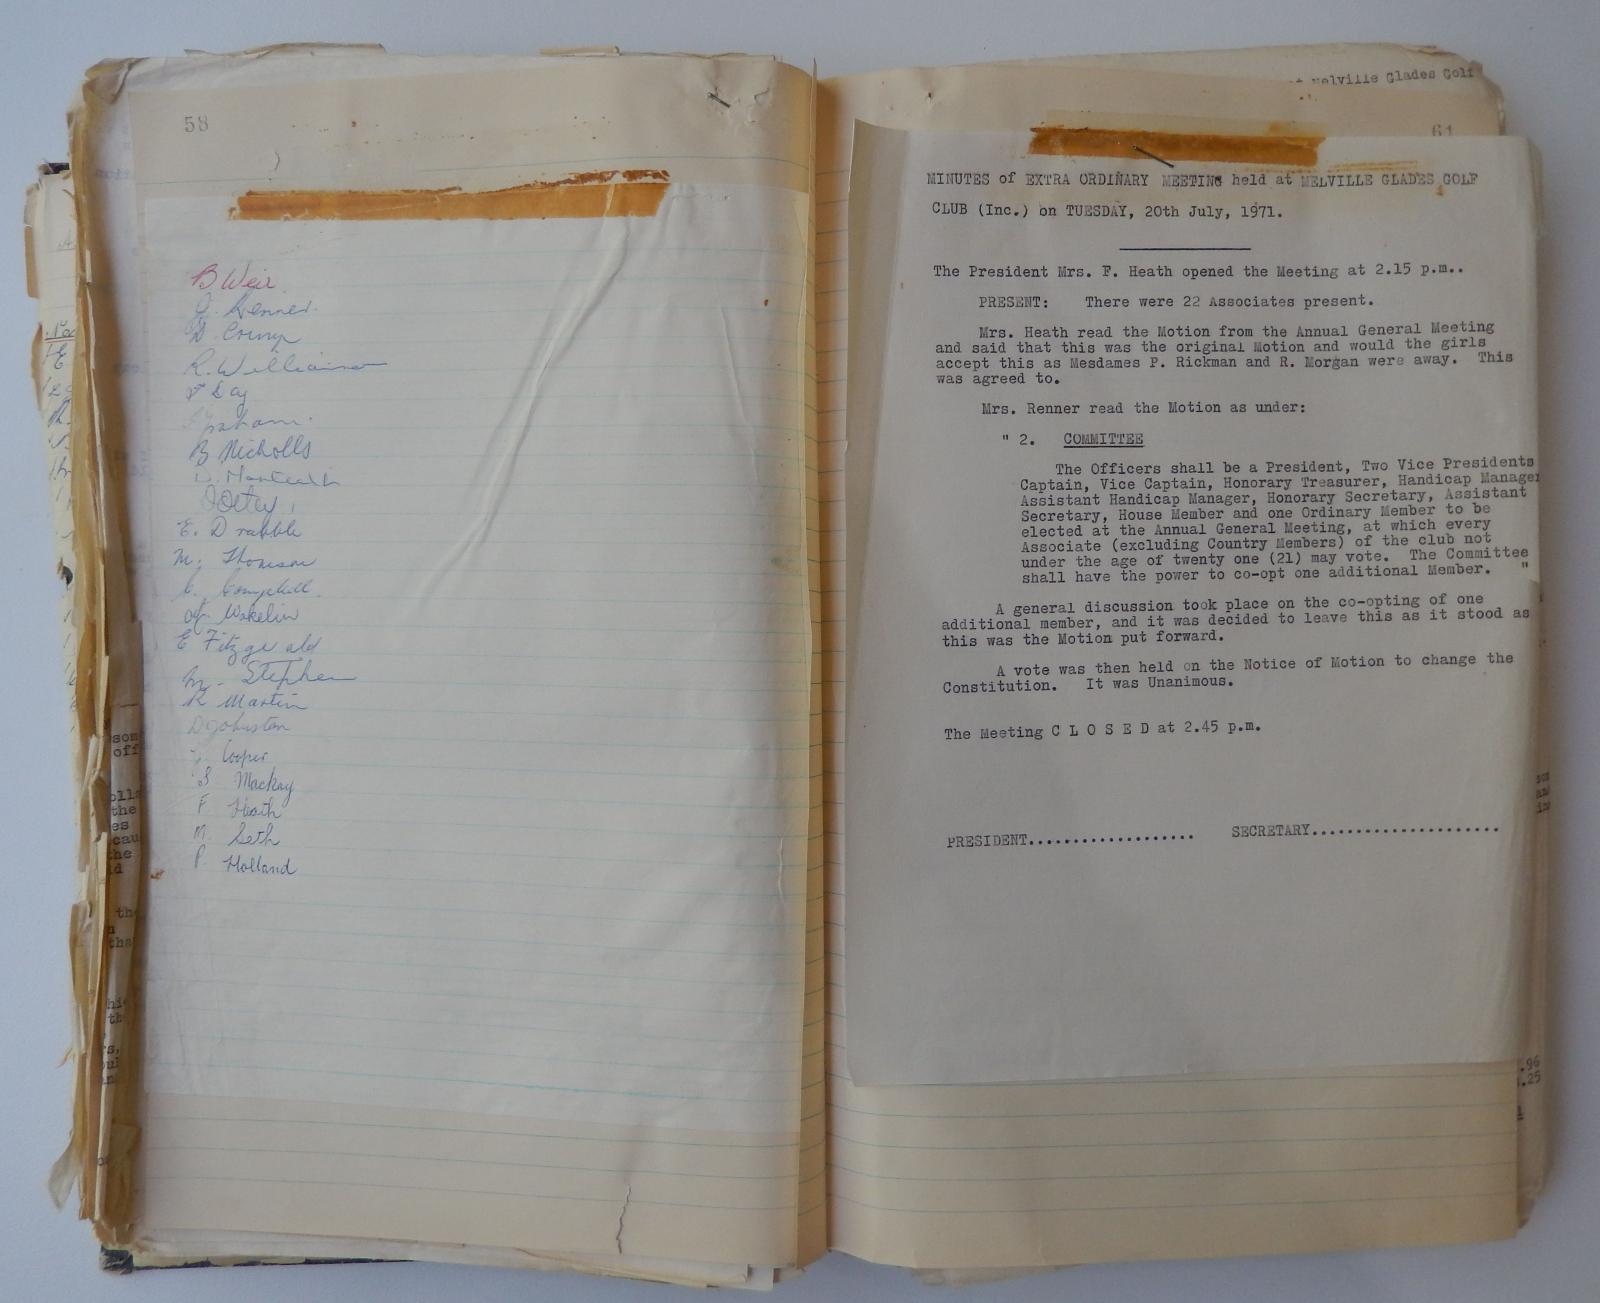 58
B Weir
J. Renner.
D. Crump
R. Williamson
Day
Graham.
B Nicholls
D. Monteith
E. Drabble
M. Thomson
C. Campbell.
Wakelin
E Fitzgerald
M. Stephen
R Martin
D Johnston
Cooper
S Mackay
F Heath
M. Seth
P. Holland
Melville Glades Golf
61
MINUTES of EXTRA ORDINARY MEETING held at MELVILLE GLADES GOLF
CLUB (Inc.) on TUESDAY, 20th July, 1971.
The President Mrs. F. Heath opened the Meeting at 2.15 p.m..
PRESENT: There were 22 Associates present.
Mrs. Heath read the Motion from the Annual General Meeting
and said that this was the original Motion and would the girls
accept this as Mesdames P. Rickman and R. Morgan were away. This
was agreed to.
Mrs. Renner read the Motion as under:
" 2. COMMITTEE
The Officers shall be a President, Two Vice Presidents
Captain, Vice Captain, Honorary Treasurer, Handicap Manager
Assistant Handicap Manager, Honorary Secretary, Assistant
Secretary, House Member and one Ordinary Member to be
elected at the Annual General Meeting, at which every
Associate (excluding Country Members) of the club not
under the age of twenty one (21) may vote. The Committee
shall have the power to co-opt one additional Member. "
A general discussion took place on the co-opting of one
additional member, and it was decided to leave this as it stood as
this was the Motion put forward.
A vote was then held on the Notice of Motion to change the
Constitution. It was Unanimous.
The Meeting C L O S E D at 2.45 p.m.
PRESIDENT................... SECRETARY......................
.96
.25